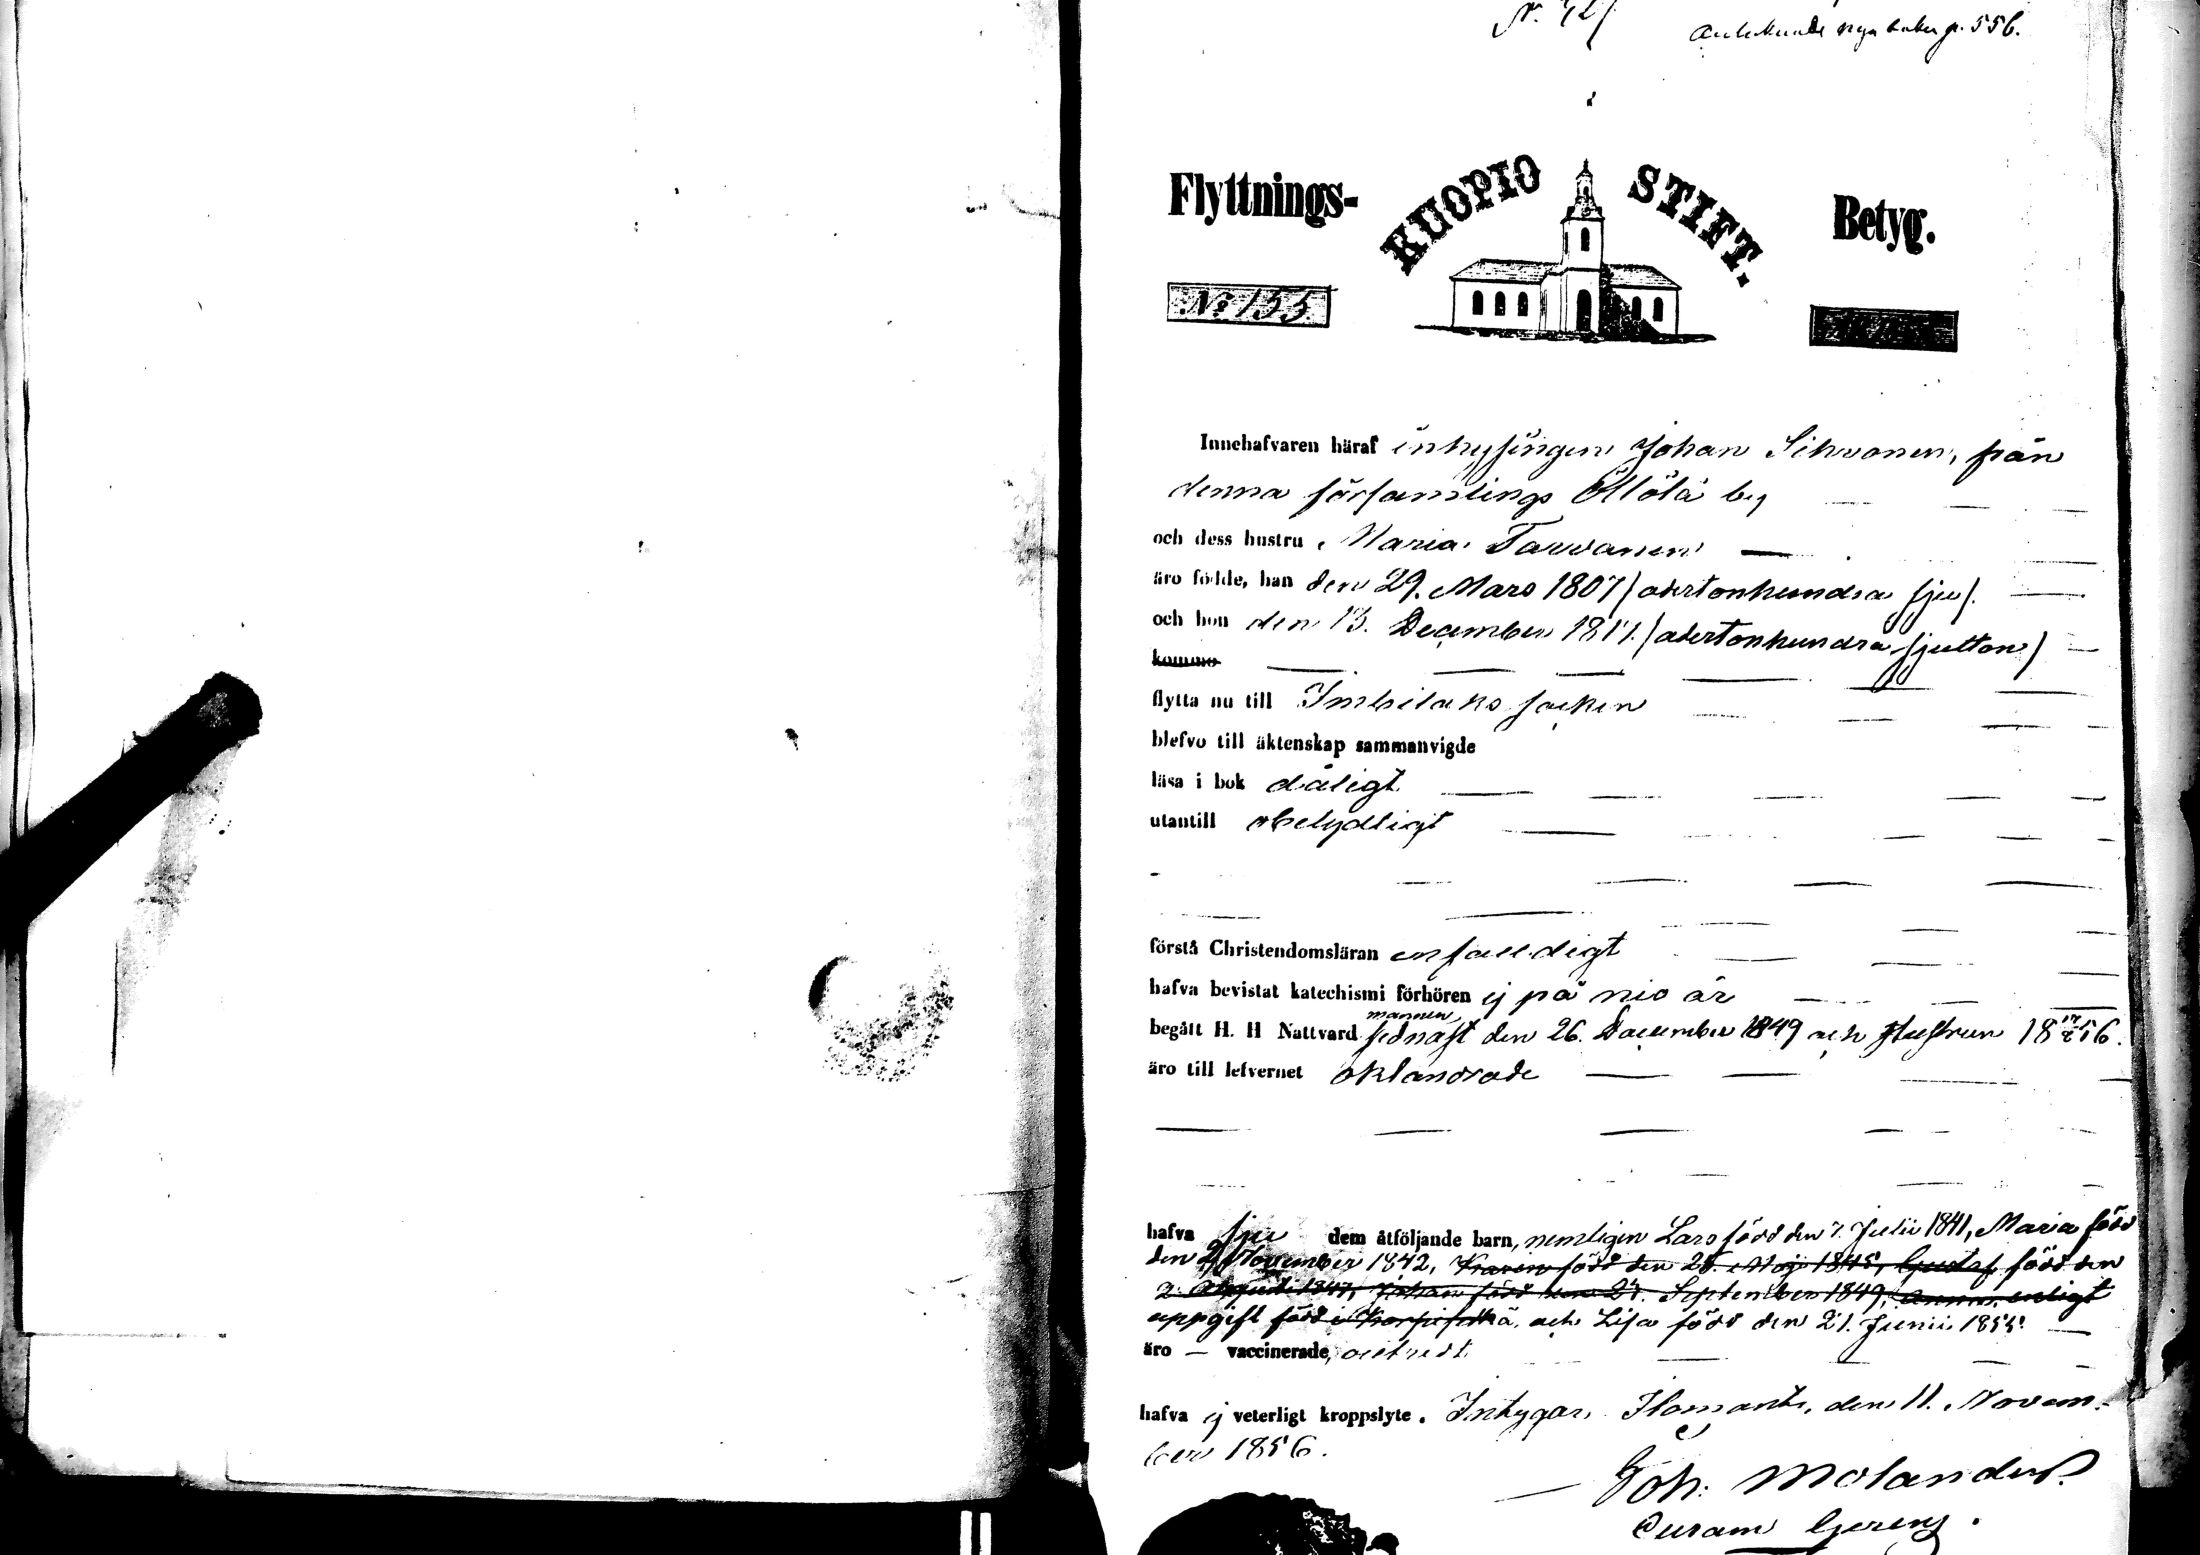 Nr. 421
Antecknade nya boken p. 556.
Flyttnings-
KUOPIO STIFT.
Betyg.
No 155.
Innehafvaren häraf inhysingen Johan Sihvonen, från
denna församlings Öllölä by
och dess hustru Maria Tarvanen
äro födde, han den 29. Mars 1807 / adertonhundra sju /.
och hon den 13. December 1817. / adertonhundra sjutton /
komme
flytta nu till Imbilaks socken
blefvo till äktenskap sammanvigde
läsa i bok dåligt
utantill obetydligt
förstå Christendomsläran enfaldigt
hafva bevistat katechismi förhören ej på nio år
mannen,
begått H. H Nattvard sednast den 26. December 1849 och Hustrun 18 17/2 56.
äro till lefvernet oklandrade
hafva sju dem åtföljande barn, nemligen Lars född den 7. Julii 1841, Maria född
den 2 November 1842, Karin född den 25. Maji 1845, Gustaf född den
2. Augusti 1847, Johan född den 27. September 1849, Anna enligt
uppgift född i Korpiselkä, och Lisa född den 21. Junii 1855.
äro — vaccinerade,
hafva ej veterligt kroppslyte. Intygar. Ilomants, den 11. Novem-
ber 1856.
Joh: Molander
Curam Gerens.